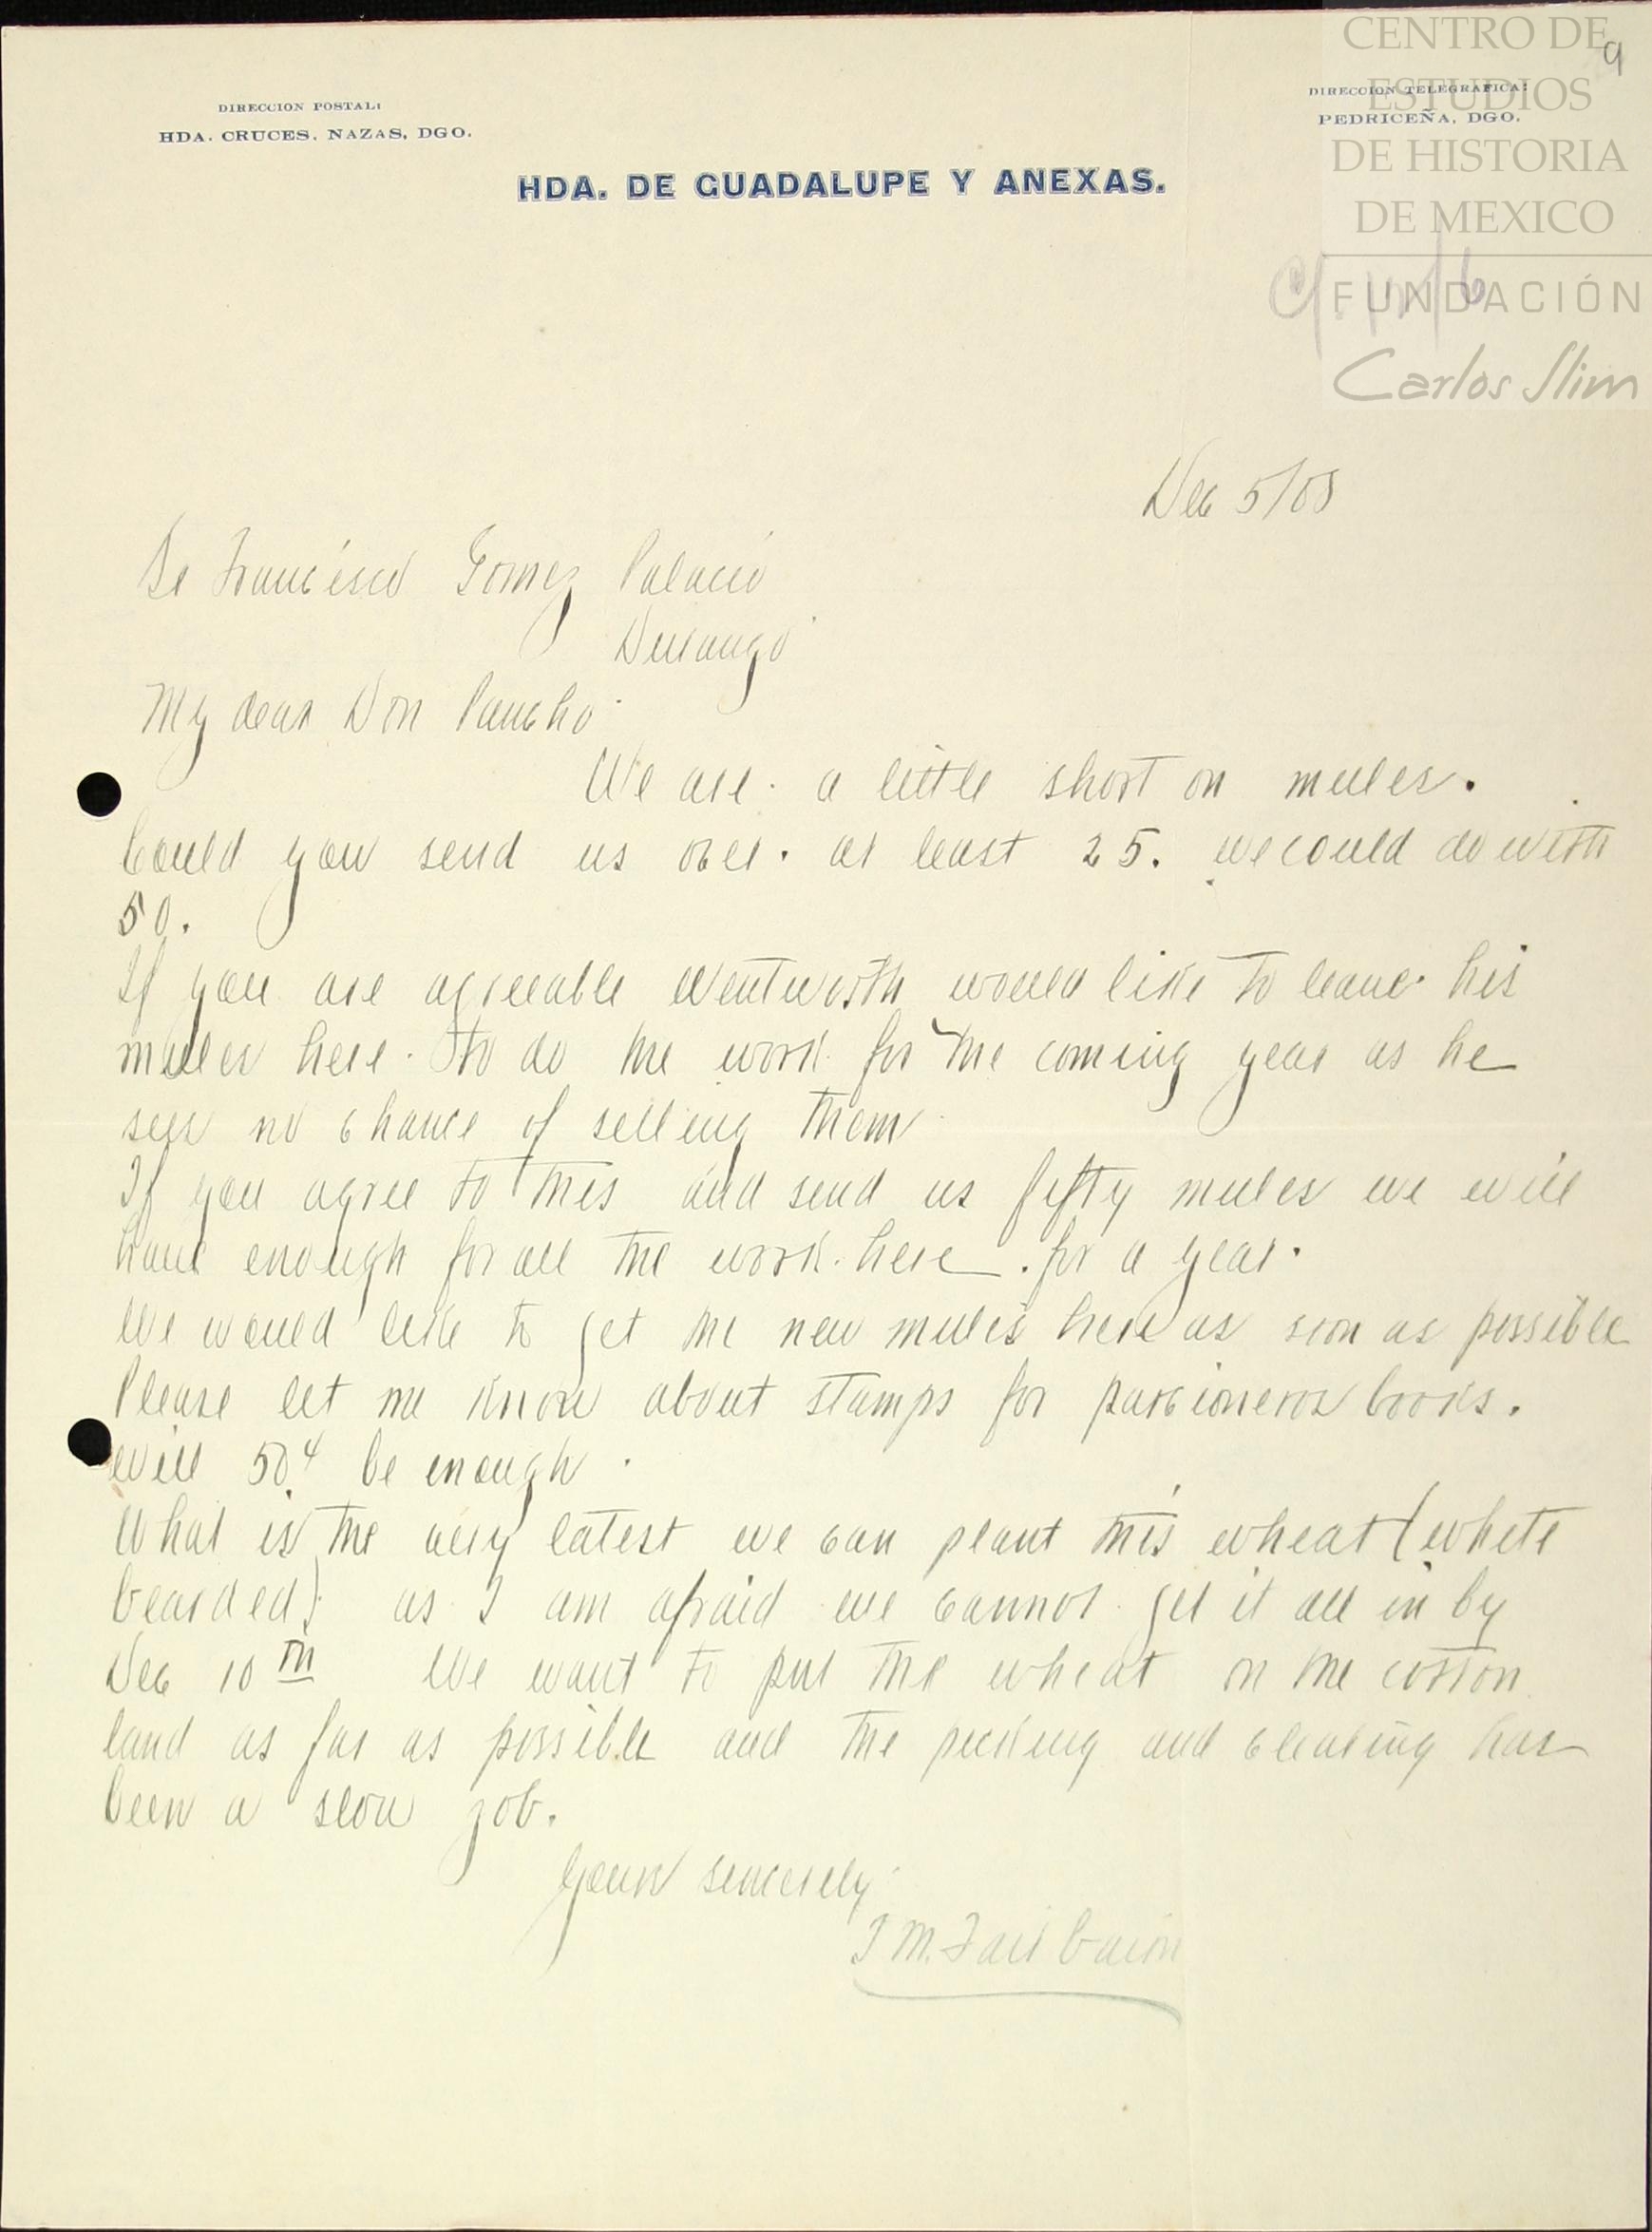 CENTRO DE
ESTUDIOS
DE HISTORIA
DE MEXICO
FUNDACIÓN
Carlos Slim
9
DIRECCION POSTAL:
HDA. CRUCES. NAZAS, DGO.
DIRECCION TELEGRAFICA:
PEDRICEÑA, DGO.
HDA. DE GUADALUPE Y ANEXAS.
Dec 5/08
Sr Francisco Gomez Palacio
Durango
My dear Don Pancho
We are a little short on mules.
Could you send us over at least 25. we could do with
50.
If you are agreeable Wentworth would like to leave his
mules here to do the work for the coming year as he
sees no chance of selling them
If you agree to this and send us fifty mules we will
have enough for all the work here . for a year.
We would like to get the new mules here as soon as possible
Please let me know about stamps for parcioneros books.
Will 50 ¢ be enough
What is the very latest we can plant this wheat (white
bearded) as I am afraid we cannot get it all in by
Dec 10th We want to put the wheat on the cotton
land as far as possible and the picking and clearing has
been a slow job.
Yours sincerely
J M. Fairbairn